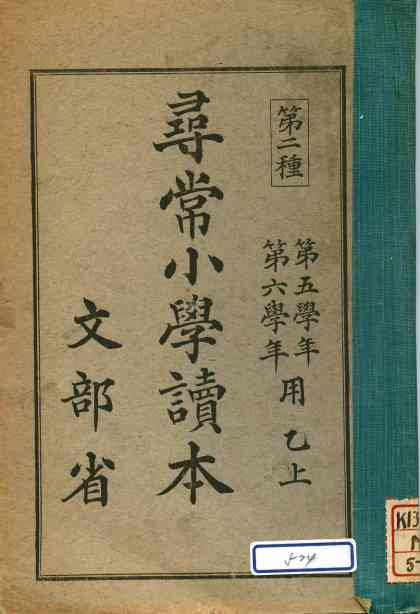 第二種
第五學年
第六學年
用乙上
尋常小學讀本
文部省
5-24
K13
5-